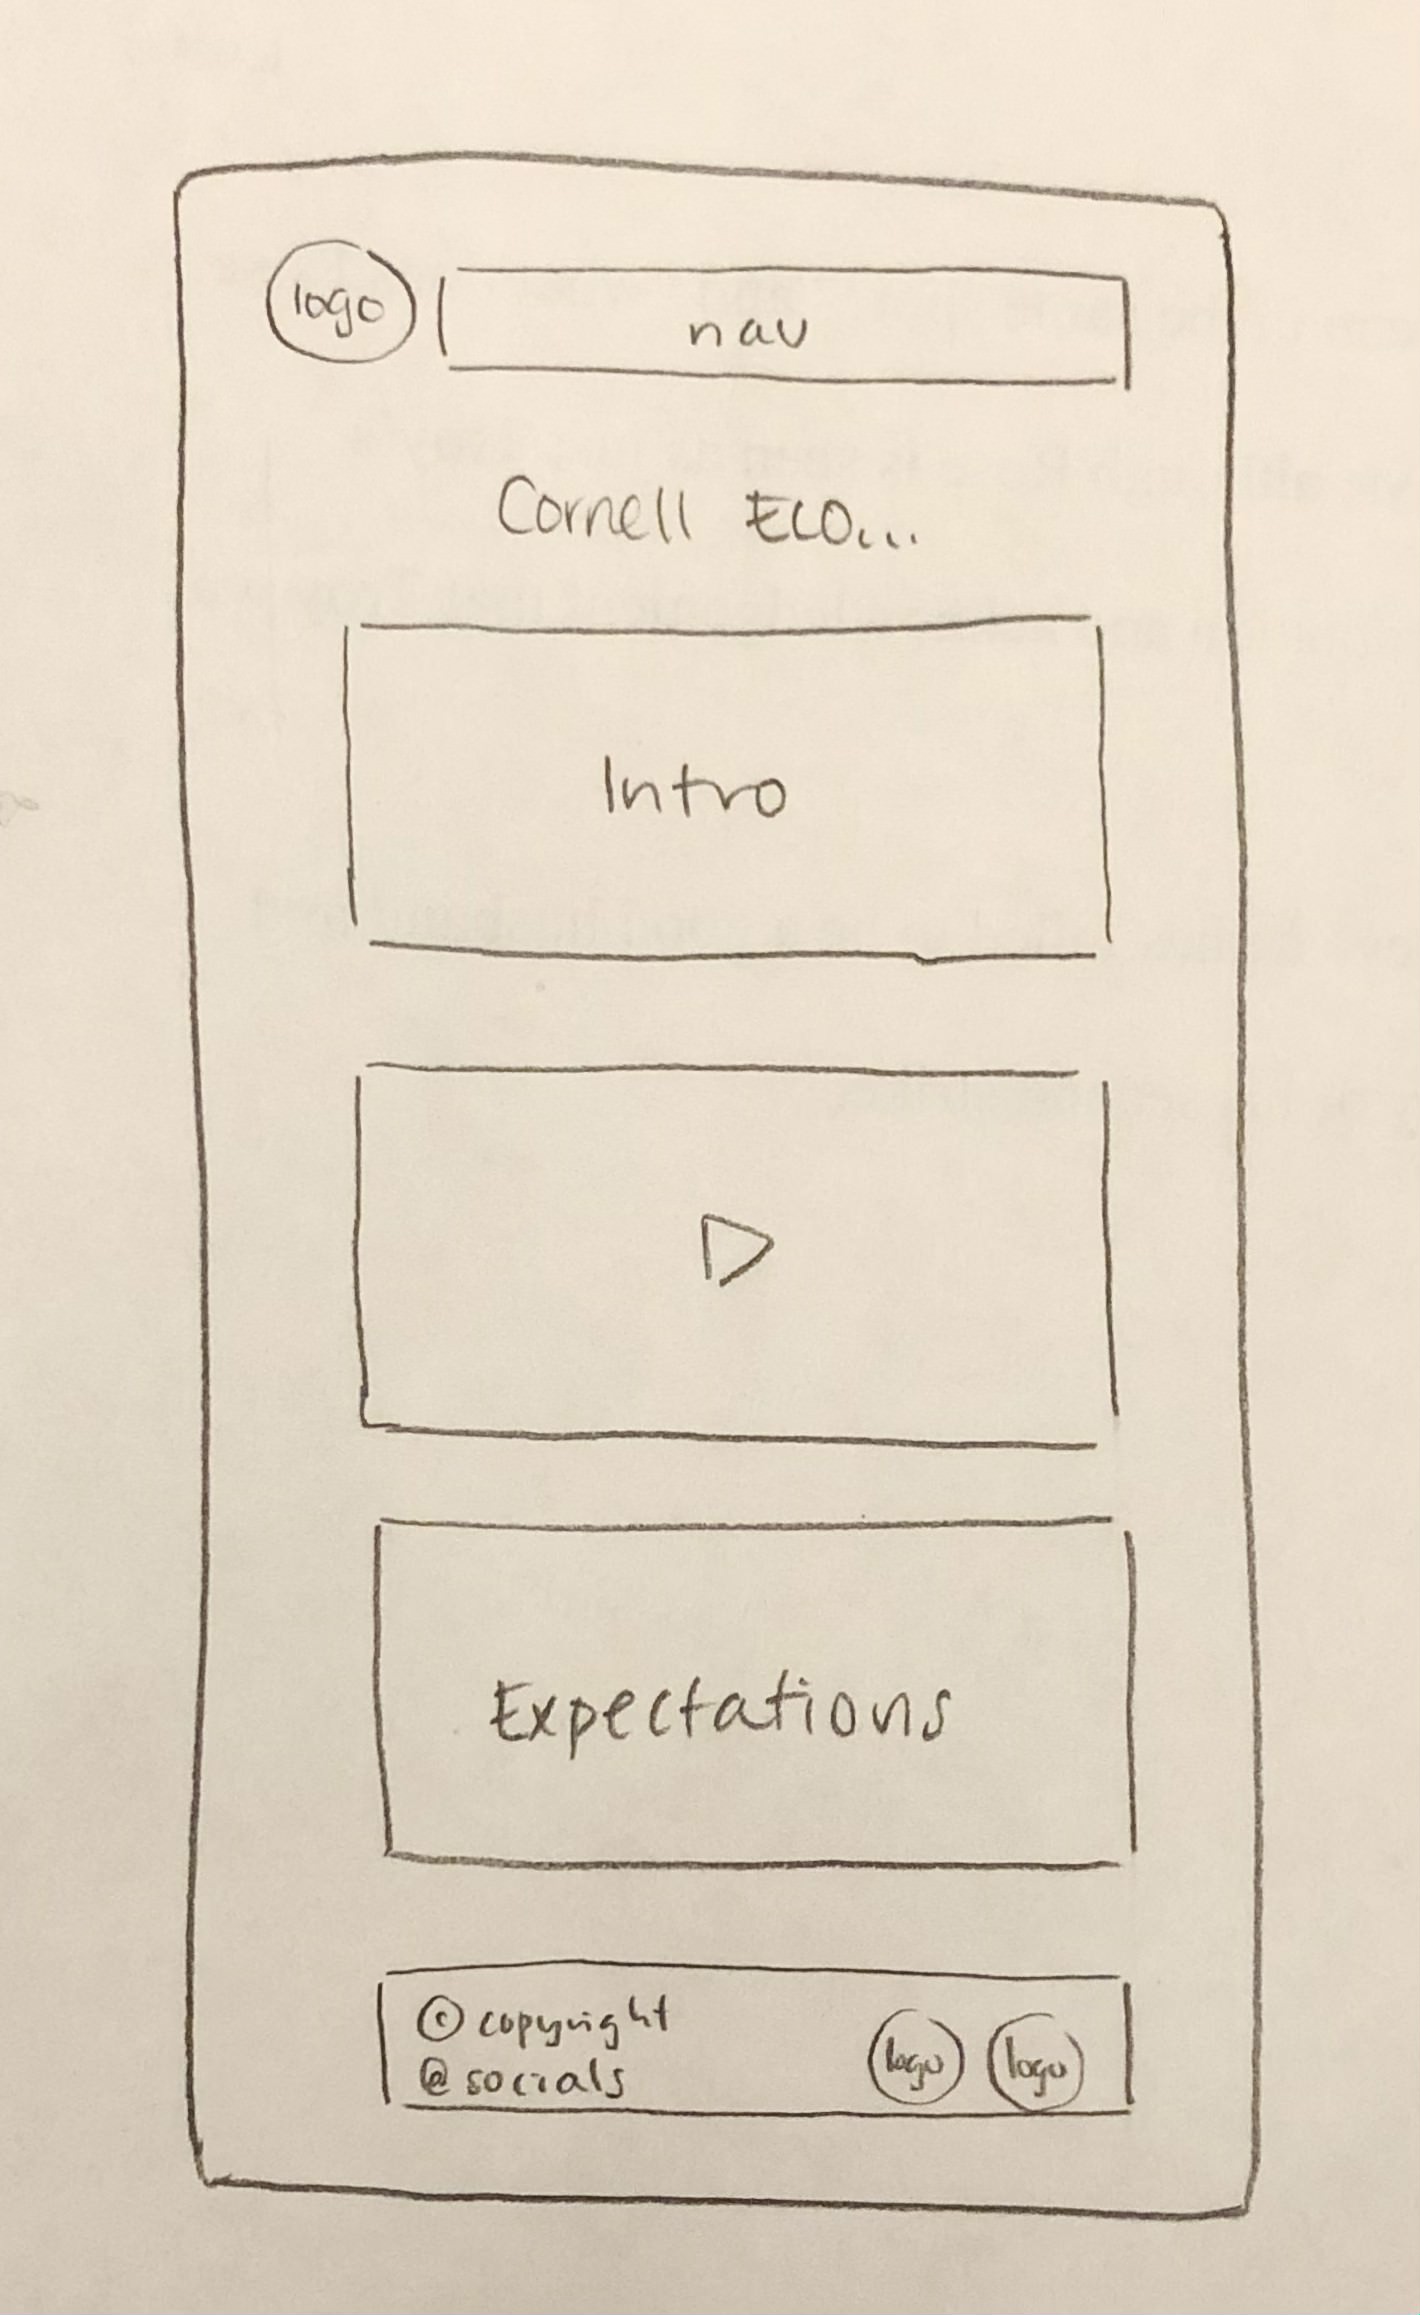 logo
nav
Cornell ECO...
Intro
Expectations
© copyright
@ socials
logo logo